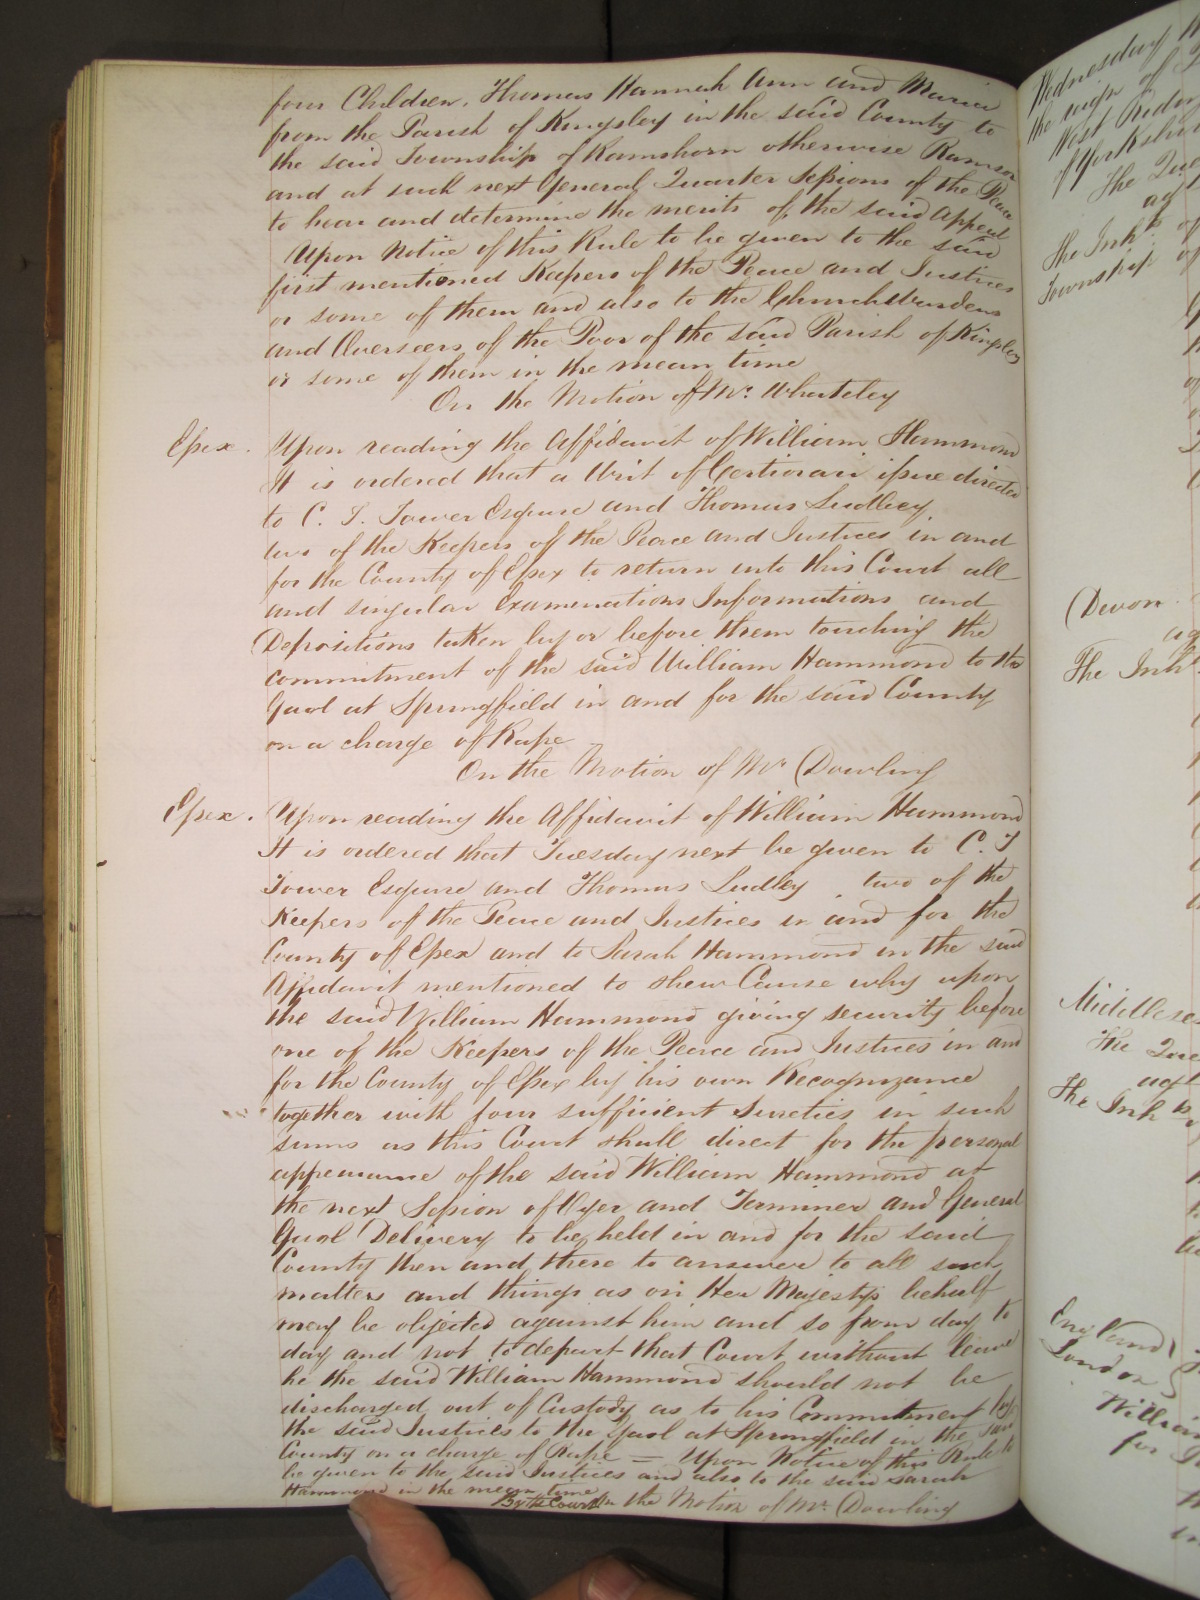 four Children, Thomas Hannah Ann and Maria
from the Parish of Kingsley in the said County to
the said Township of Ramshorn otherwise Ramsor
and at such next General Quarter Sessions of the Peace
to hear and determine the merits of the said Appeal
Upon Notice of this Rule to be given to the said
first mentioned Keepers of the Peace and Justices
or some of them and also to the Churchwardens
and Overseers of the Poor of the said Parish of Kingsley
or some of them in the mean time
On the Motion of Mr. Whateley
Essex. Upon reading the Affidavit of William Hammond
It is ordered that a Writ of Certiorari issue directed
to C. T. Tower Esquire and Thomas Sudley
two of the Keepers of the Peace and Justices in and
for the County of Essex to return into this Court all
and singular Examinations Informations and
Depositions taken by or before them touching the
commitment of the said William Hammond to the
Gaol at Springfield in and for the said County
on a charge of Rape
On the Motion of Mr Dowling
Essex. Upon reading the Affidavit of William Hammond
It is ordered that Tuesday next be given to C. T
Tower Esquire and Thomas Sudley two of the
Keepers of the Peace and Justices in and for the
County of Essex and to Sarah Hammond in the said
Affidavit mentioned to shew Cause why upon
the said William Hammond giving security before
one of the Keepers of the Peace and Justices in and
for the County of Essex by his own Recognizance
together with four sufficient Sureties in such
sums as this Court shall direct for the personal
appearance of the said William Hammond at
the next Session of Oyer and Terminer and General
Gaol Delivery to be held in and for the said
County then and there to answer to all such
matters and things as on Her Majesty's behalf
may be objected against him and so from day to
day and not to depart that Court without leave
he the said William Hammond should not be
discharged out of Custody as to his Commitment by
the said Justices to the Gaol at Springfield in the said
County on a charge of Rape = Upon Notice of this Rule to
be given to the said Justices and also to the said Sarah
Hammond in the mean time
By the Court On the Motion of Mr. Dowling
Wednesday
the
West Riding
of Yorkshire
The
ag
the Inhts
Township
(Devon
ag
The Inh
Middlesex
The Que
agt
The Inhts
England
London
William
for